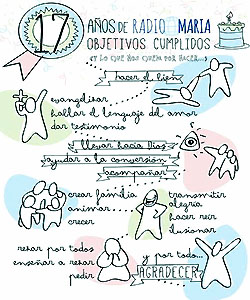 17
AÑOS DE RADIO MARIA
OBJETIVOS CUMPLIDOS
(Y LO QUE NOS QUEDA POR HACER...)
hacer el bien
evangelizar
hablar el lenguaje del amor
dar testimonio
llevar hacia Dios
ayudar a la conversión
acompañar
crear familia
animar
crecer
transmitir
alegría
hacer reir
ilusionar
rezar por todos
enseñar a rezar
pedir
y por todo...
AGRADECER